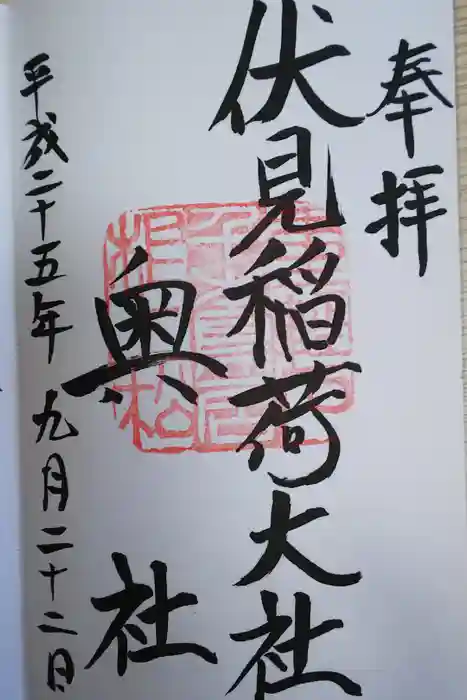 奉拝
伏見稲荷大社
奥社
平成二十五年九月二十二日